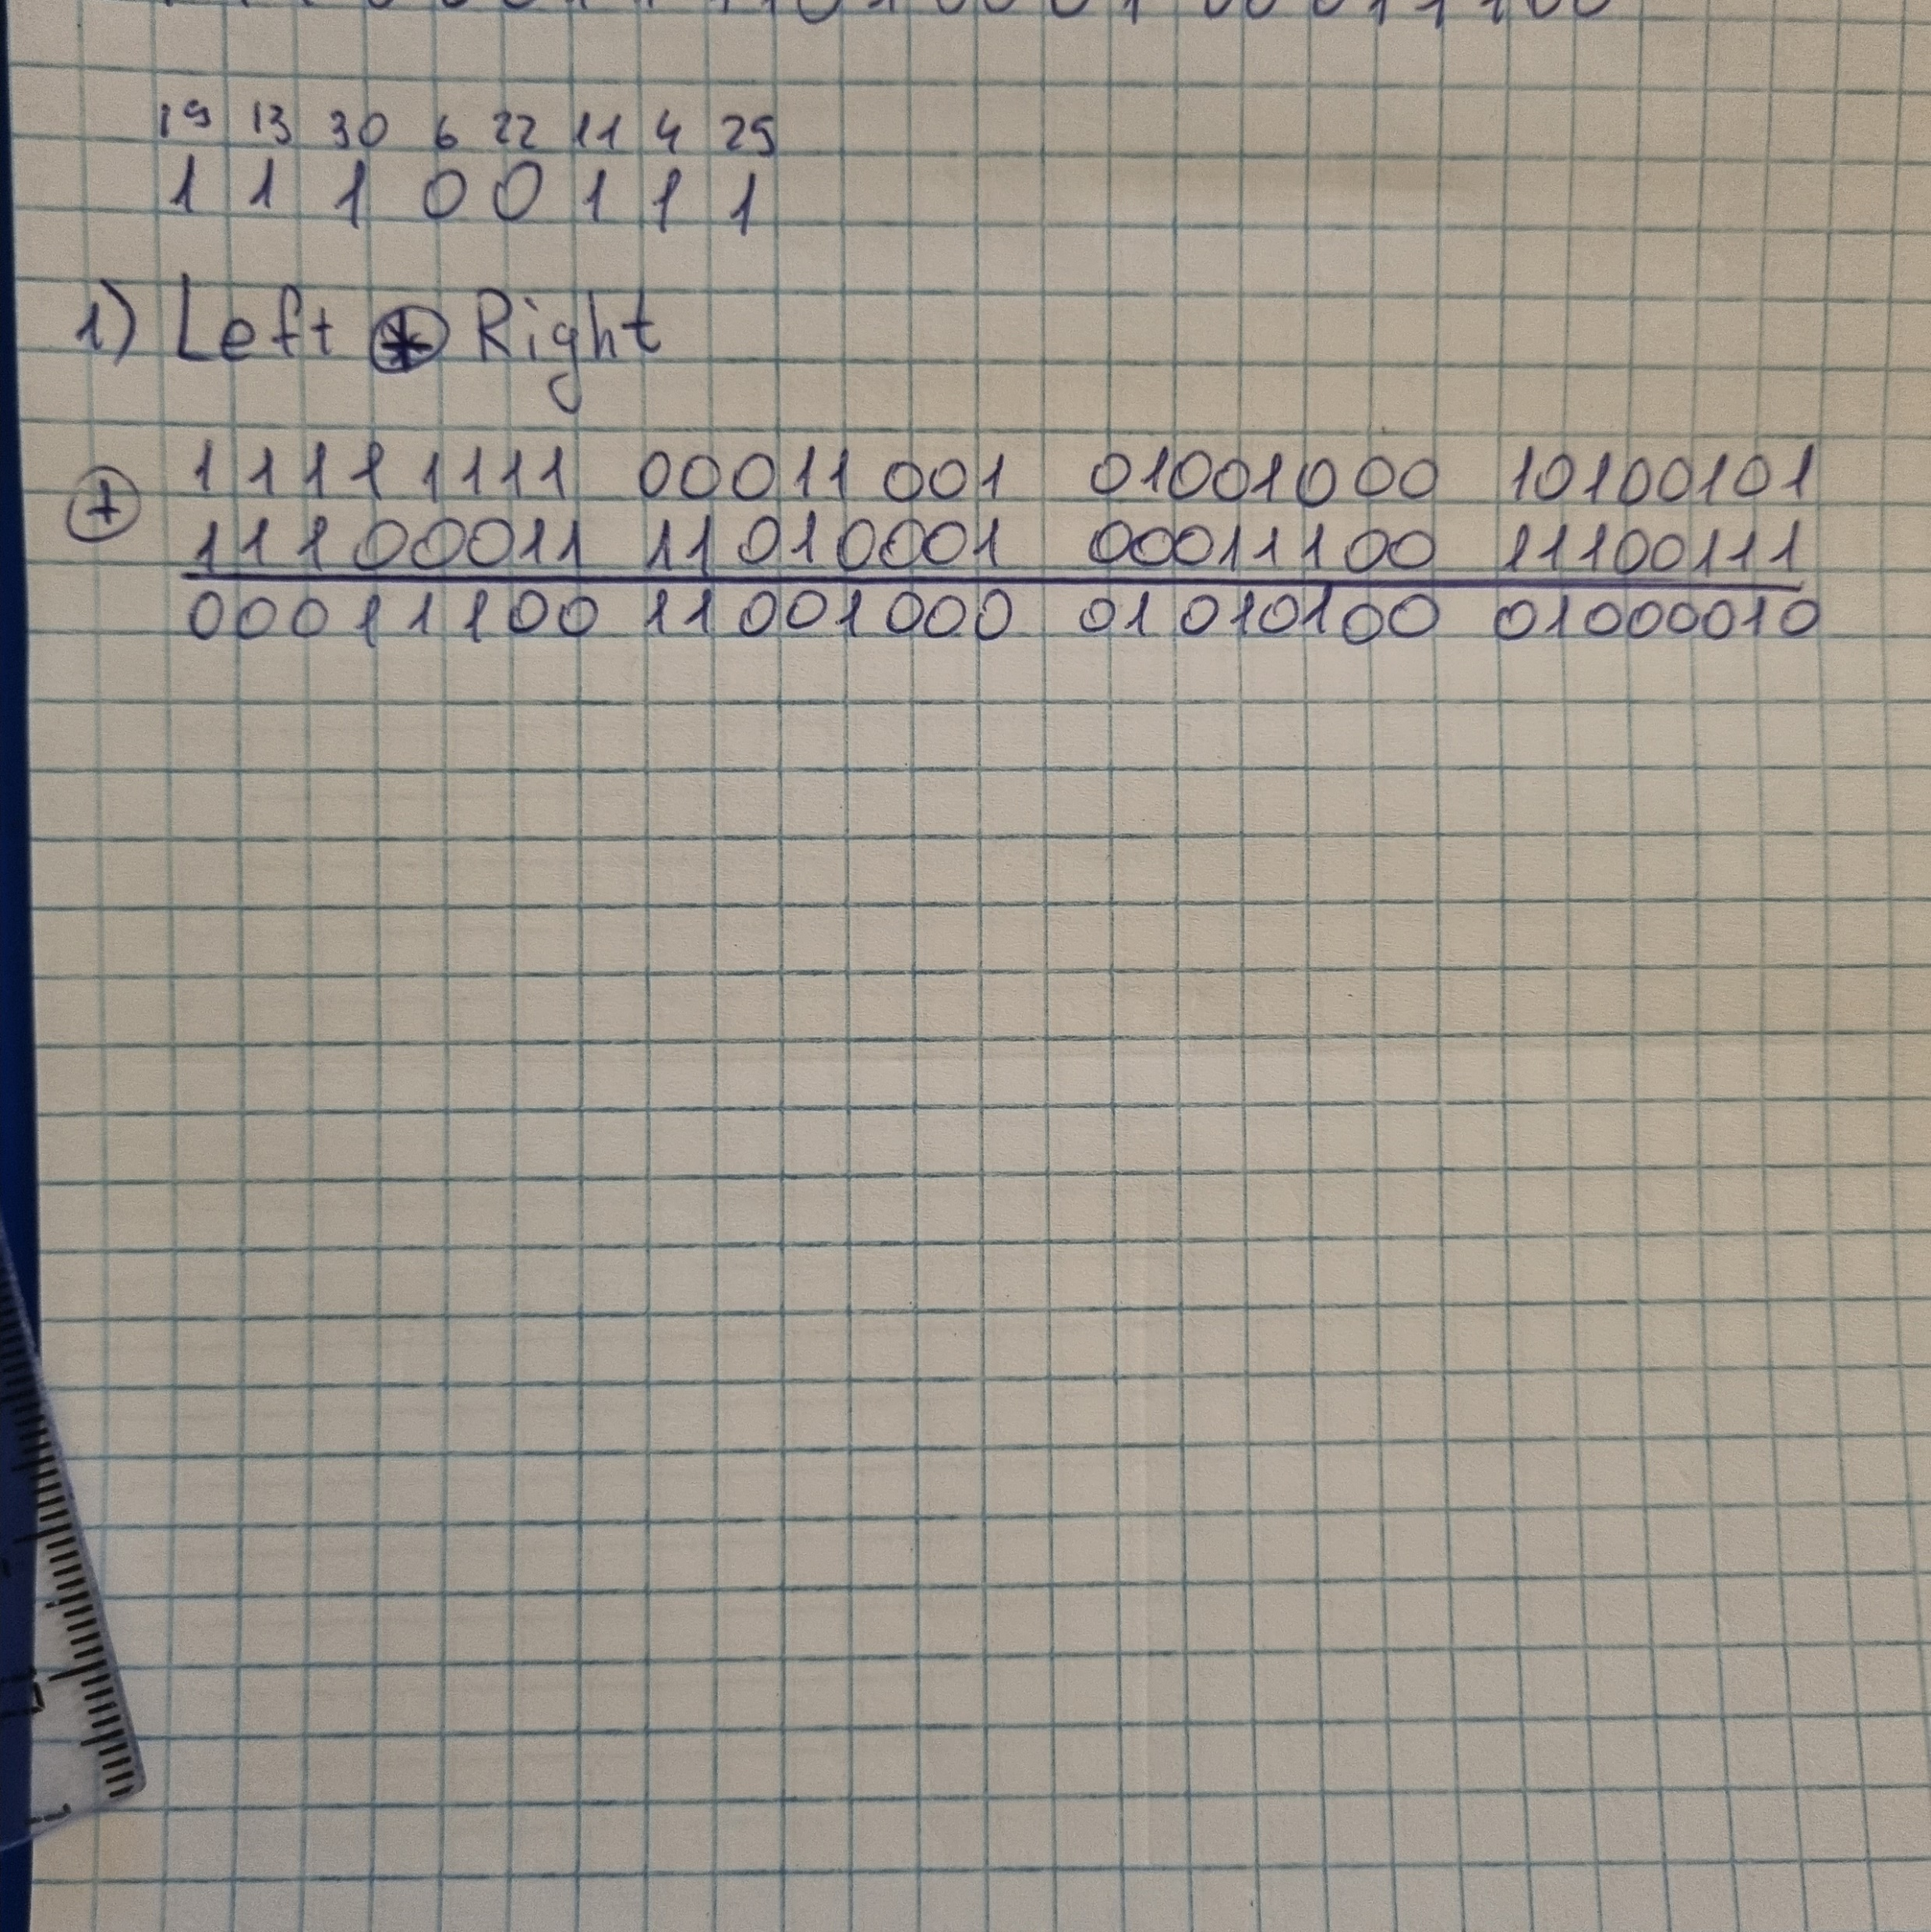 19 13 30 6 22 11 4 25
1 1 1 0 0 1 1 1
1) Left ⊛ Right
⊕ 11111111 00011001 01001000 10100101
11100011 11010001 00011100 11100111
00011100 11001000 01010100 01000010